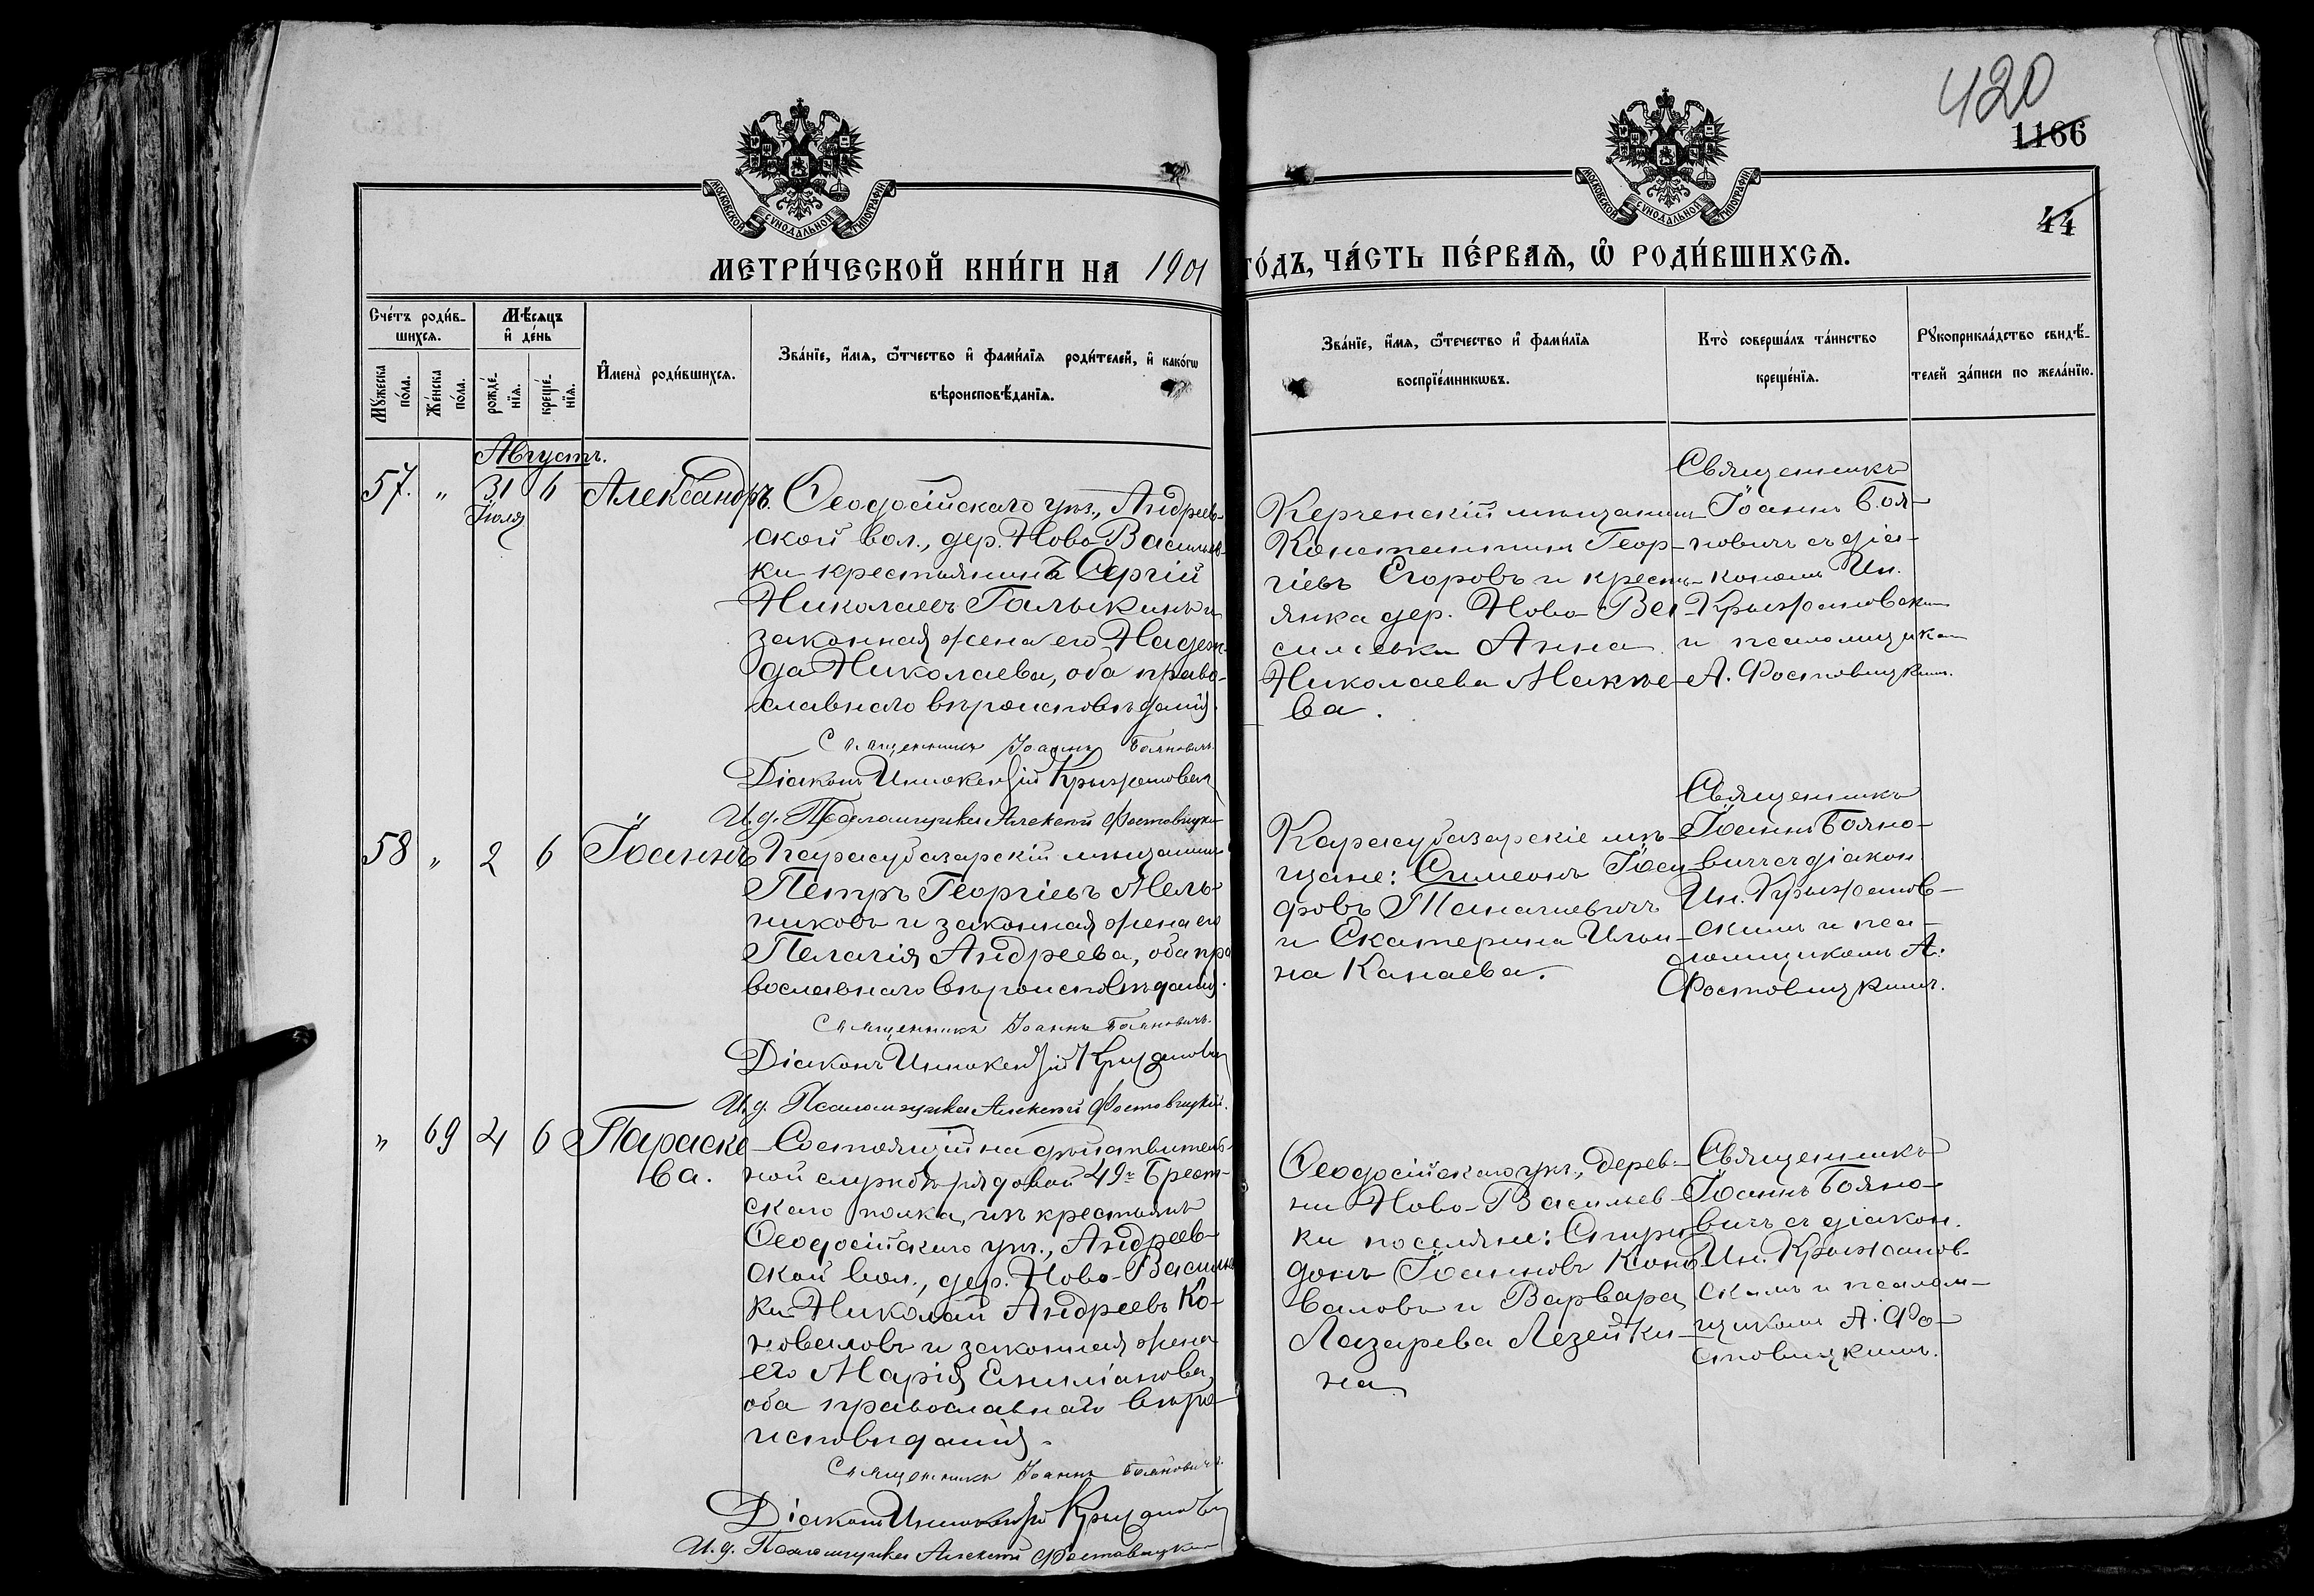 420
1166
44
МОСКОВСКОЙ СѴНОДАЛЬНОЙ ТИПОГРАФІИ
МОСКОВСКОЙ СѴНОДАЛЬНОЙ ТИПОГРАФІИ
МЕТРИ́ЧЕСКОЙ КНИ́ГИ НА 1901
ГО́ДЪ, ЧА́СТЬ ПЕ́РВАѦ, Ѡ҆ РОДИ́ВШИХСѦ.
Сче́тъ роди́в-
шихсѧ.
Мѣ́сѧцъ
и҆ де́нь
Мꙋ́жеска по́ла.
Же́нска по́ла.
рожде́-
нїѧ.
креще́-
нїѧ.
И҆мена̀ роди́вшихсѧ.
Зва́нїе, и҆́мѧ, ѻ҆́тчество и҆ фами́лїѧ роди́телей, и҆ како́гѡ
вѣроисповѣ́данїѧ.
Зва́нїе, и҆́мѧ, ѻ҆́течество и҆ фами́лїѧ
воспрїе́мникѡвъ.
Кто̀ соверша́лъ та́инство
креще́нїѧ.
Рꙋкоприкла́дство свидѣ́-
телей за́писи по жела́нїю.
Августъ.
57. " 31 6 Александръ.
Іюля
Ѳеодосійскаго уѣз., Андреев-
ской вол., дер. Ново-Васильев-
ки крестьянинъ Сергій
Николаевъ Галыкинъ и
законная жена его Надеж-
да Николаева, оба право-
славнаго вѣроисповѣданія.
Священникъ Іоаннъ Бояновичъ.
Діаконъ Иннокентій Крыжановскій
И. д. Псаломщика Алексей Фостовицкій
Керченскій мѣщанинъ
Константинъ Геор-
гіевъ Егоровъ и кресть-
янка дер. Ново-Ва-
сильевки Анна
Николаева Макѣе-
ва.
Священникъ
Іоаннъ Боя-
новичъ съ діа-
кономъ Ин.
Крыжановским
и псаломщиком
А. Фостовицкимъ.
58 " 2 6 Іоаннъ
Карасубазарскій мѣщанинъ
Петръ Георгіевъ Мель-
никовъ и законная жена его
Пелагія Андреева, оба пра
вославнаго вѣроисповѣданія.
Священникъ Іоаннъ Бояновичъ.
Діаконъ Иннокентій Крыжановскій
И. д. Псаломщика Алексей Фостовицкій.
Карасубазарскіе мѣ-
щане: Симеонъ Іоси
фовъ Танасиевичъ
и Екатерина Ильи-
на Канаева.
Священникъ
Іоаннъ Бояно-
вичъ съ діакон.
Ин. Крыжанов-
скимъ и пса-
ломщикомъ А.
Фостовицкимъ.
" 69 4 6 Параске
ва.
Состоящій на дѣйствитель-
ной службѣ рядовой 49го Брест-
скаго полка, изъ крестьянъ
Ѳеодосійскаго уѣз., Андреев-
ской вол., дер. Ново-Васильев
ки Николай Андреевъ Ко-
новаловъ и законная жена
его Марія Емиліанова,
оба православнаго вѣро-
исповѣданія.
Священникъ Іоаннъ Бояновичъ.
Діаконъ Иннокентій Крыжановскій
И. д. Псаломщика Алексей Фостовицкій
Ѳеодосійскаго уѣз., дерев-
ни Ново-Васильев-
ки поселяне: Спири
донъ Іоанновъ Коно
валовъ и Варвара
Лазарева Лезейки-
на
Священникъ
Іоаннъ Бояно-
вичъ съ діакон.
Ин. Крыжанов-
скимъ и псалом-
щикомъ А. Фо-
стовицкимъ.